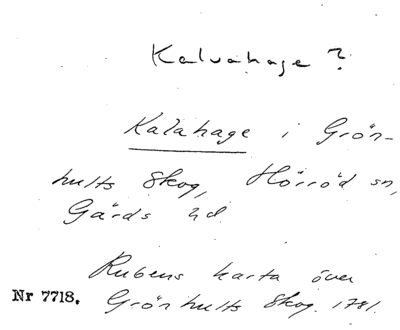 Kalvahage?
Kalahage i Grön-
hults Skog, Hörröd sn,
Gärds hd
Rubens karta över
Nr 7718. Grönhults Skog. 1781.